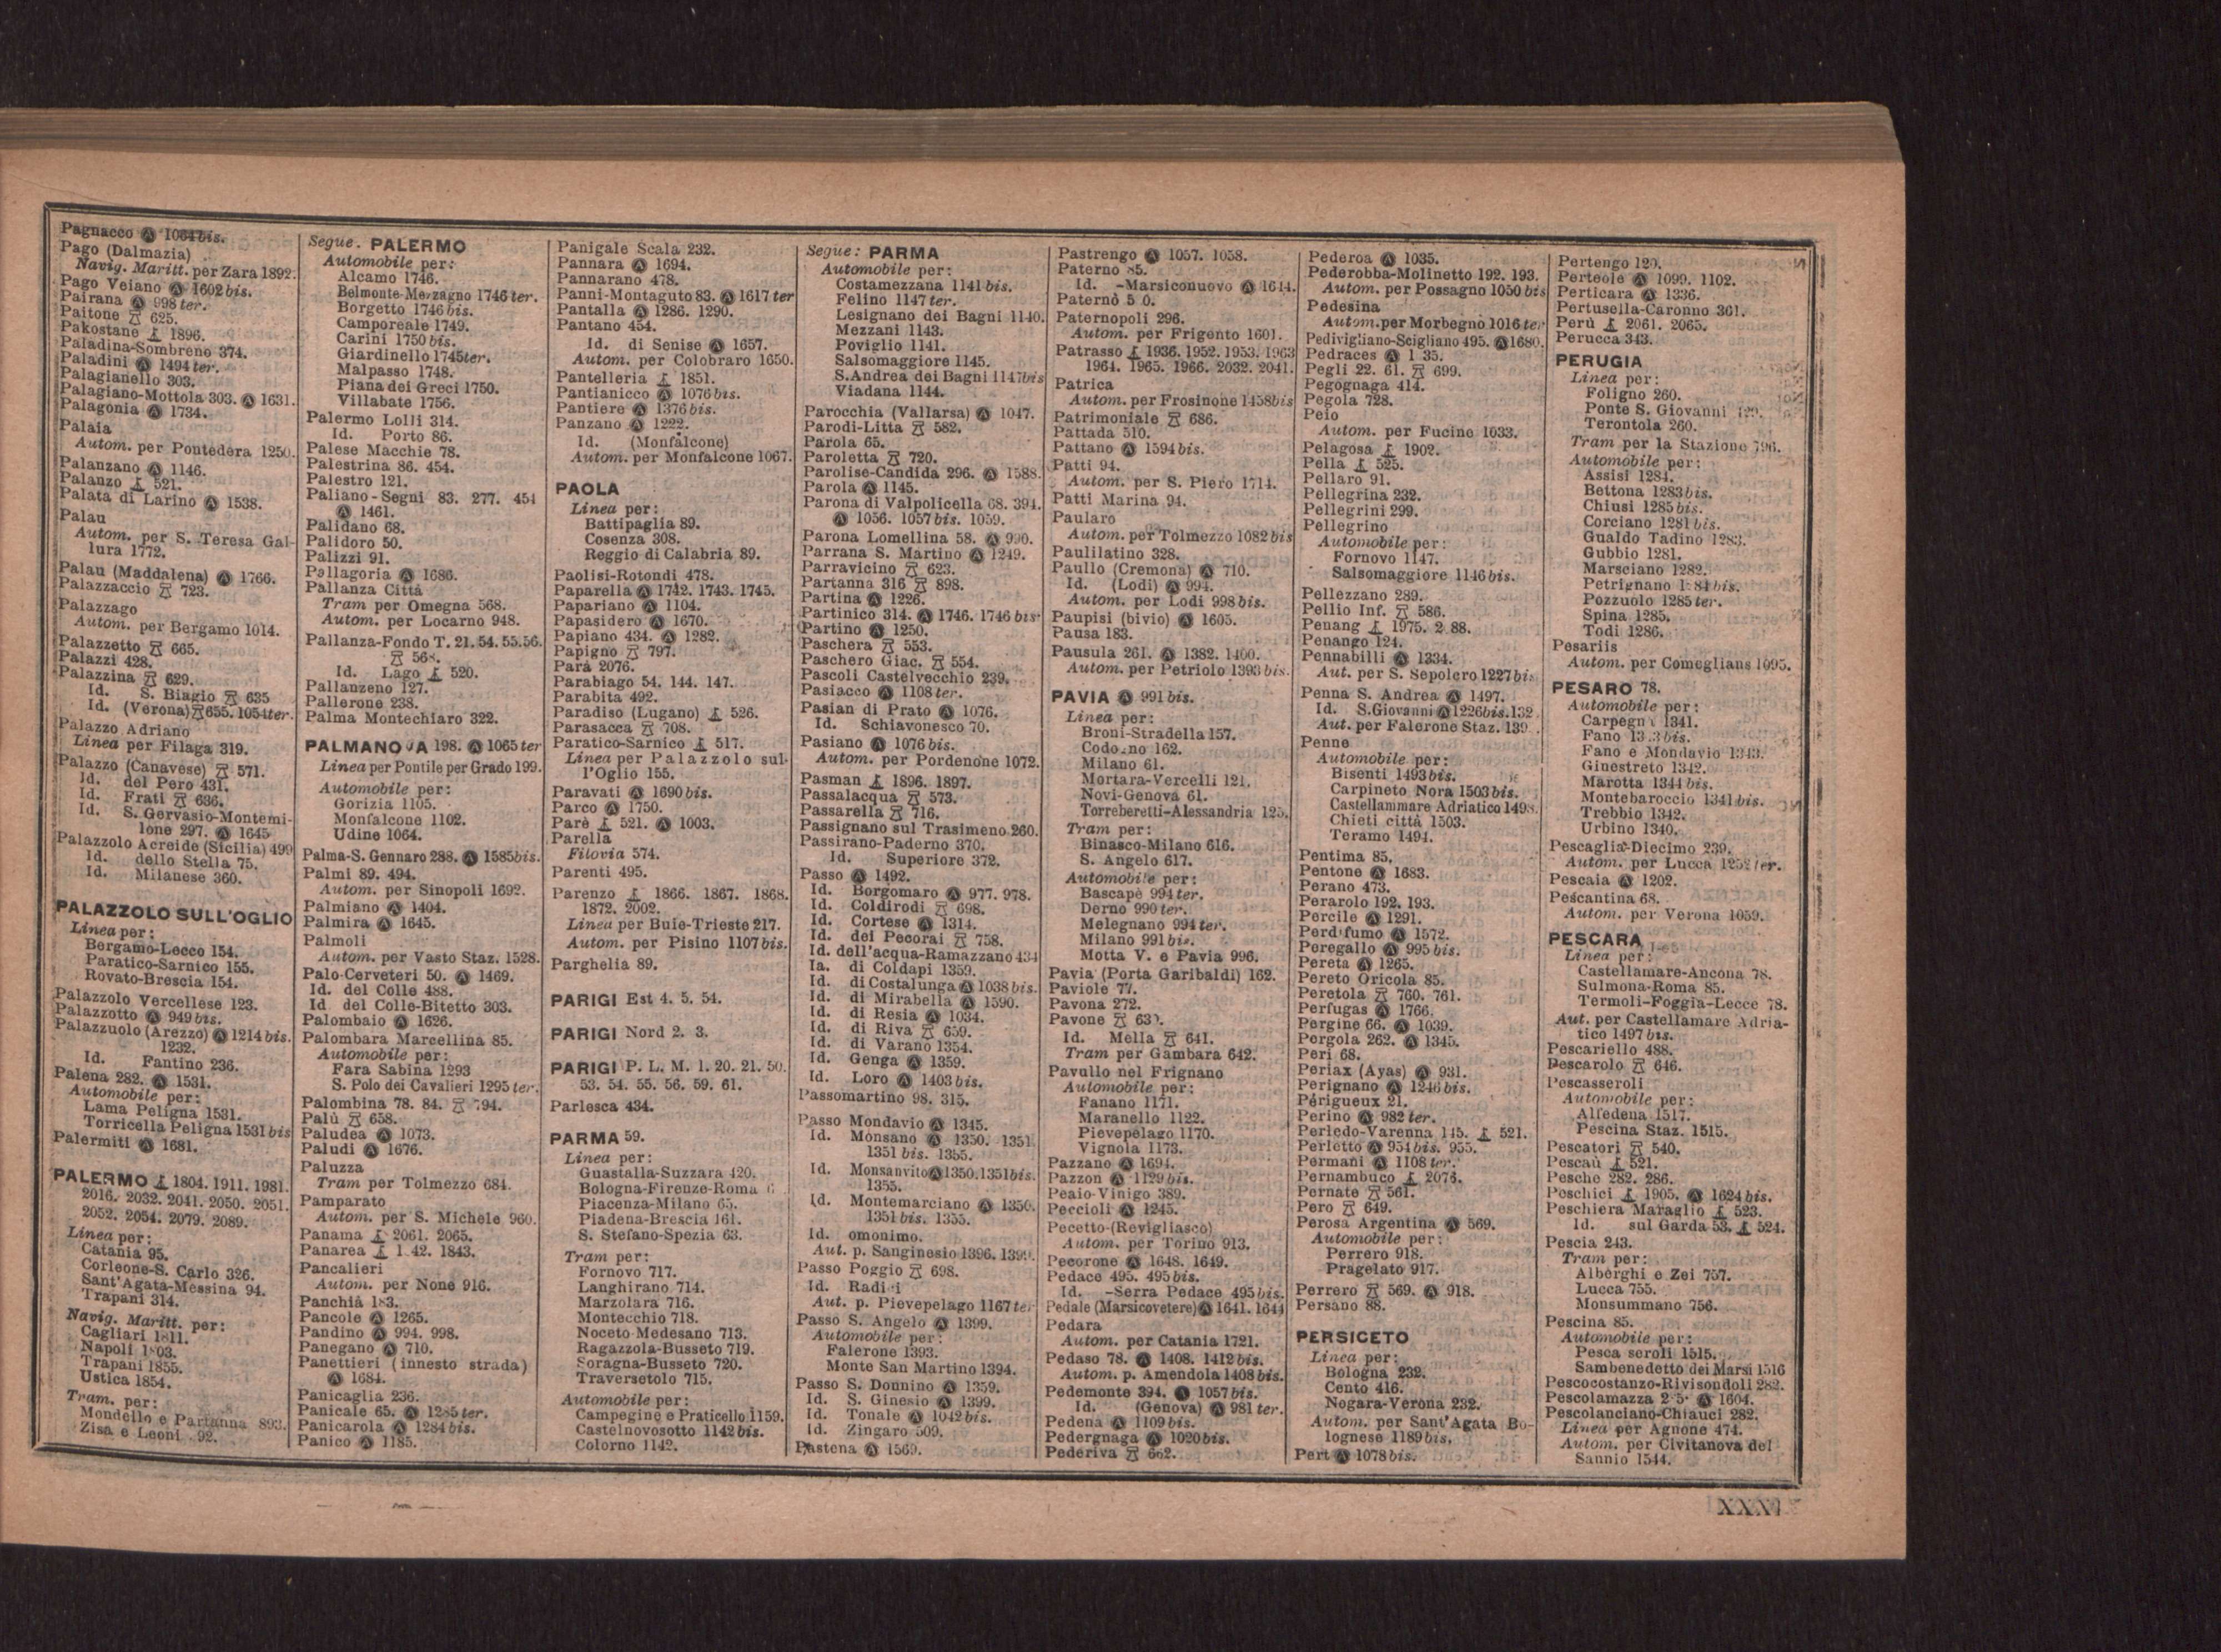 Pagnacco Ⓐ 1064bis.
Pago (Dalmazia)
Navig. Maritt. per Zara 1892.
Pago Veiano Ⓐ 1602bis.
Pairana Ⓐ 998 ter.
Paitone 625.
Pakostane 1896.
Paladina-Sombreno 374.
Paladini Ⓐ 1494 ter.
Palagianello 303.
Palagiano-Mottola 303. Ⓐ 1631.
Palagonia Ⓐ 1734.
Palaia
Autom. per Pontedera 1250.
Palanzano Ⓐ 1146.
Palanzo 521.
Palata di Larino Ⓐ 1538.
Palau
Autom. per S. Teresa Gal-
lura 1772.
Palau (Maddalena) Ⓐ 1766.
Palazzaccio 723.
Palazzago
Autom. per Bergamo 1014.
Palazzetto 665.
Palazzi 428.
Palazzina 629.
Id. S. Biagio 635
Id. (Verona) 655. 1054ter.
Palazzo Adriano
Linea per Filaga 319.
Palazzo (Canavese) 571.
Id. del Pero 431.
Id. Frati 636.
Id. S. Gervasio-Montemi-
lone 297. Ⓐ 1645
Palazzolo Acreide (Sicilia) 499
Id. dello Stella 75.
Id. Milanese 360.
PALAZZOLO SULL'OGLIO
Linea per:
Bergamo-Lecco 154.
Paratico-Sarnico 155.
Rovato-Brescia 154.
Palazzolo Vercellese 123.
Palazzotto Ⓐ 949bis.
Palazzuolo (Arezzo) Ⓐ 1214bis.
1232.
Id. Fantino 236.
Palena 282. Ⓐ 1531.
Automobile per:
Lama Peligna 1531.
Torricella Peligna 1531 bis
Palermiti Ⓐ 1681.
PALERMO 1804. 1911. 1981.
2016. 2032. 2041. 2050. 2051.
2052. 2054. 2079. 2089.
Linea per:
Catania 95.
Corleone-S. Carlo 326.
Sant'Agata-Messina 94.
Trapani 314.
Navig. Maritt. per:
Cagliari 1811.
Napoli 1803.
Trapani 1855.
Ustica 1854.
Tram. per:
Mondello e Partanna 893.
Zisa e Leoni 92.
Segue. PALERMO
Automobile per:
Alcamo 1746.
Belmonte-Mezzagno 1746 ter.
Borgetto 1746 bis.
Camporeale 1749.
Carini 1750 bis.
Giardinello 1745ter.
Malpasso 1748.
Piana dei Greci 1750.
Villabate 1756.
Palermo Lolli 314.
Id. Porto 86.
Palese Macchie 78.
Palestrina 86. 454.
Palestro 121.
Paliano-Segni 83. 277. 454
Ⓐ 1461.
Palidano 68.
Palidoro 50.
Palizzi 91.
Pallagoria Ⓐ 1686.
Pallanza Città
Tram per Omegna 568.
Autom. per Locarno 948.
Pallanza-Fondo T. 21. 54. 55.56.
568.
Id. Lago 520.
Pallanzeno 127.
Pallerone 238.
Palma Montechiaro 322.
PALMANOVA 198. Ⓐ 1065 ter
Linea per Pontile per Grado 199.
Automobile per:
Gorizia 1105.
Monfalcone 1102.
Udine 1064.
Palma-S. Gennaro 288. Ⓐ 1585bis.
Palmi 89. 494.
Autom. per Sinopoli 1692.
Palmiano Ⓐ 1404.
Palmira Ⓐ 1645.
Palmoli
Autom. per Vasto Staz. 1528.
Palo-Cerveteri 50. Ⓐ 1469.
Id. del Colle 488.
Id del Colle-Bitetto 303.
Palombaio Ⓐ 1626.
Palombara Marcellina 85.
Automobile per:
Fara Sabina 1293
S. Polo dei Cavalieri 1295 ter.
Palombina 78. 84. 794.
Palù 658.
Paludea Ⓐ 1073.
Paludi Ⓐ 1676.
Paluzza
Tram per Tolmezzo 684.
Pamparato
Autom. per S. Michele 960.
Panama 2061. 2065.
Panarea 1842. 1843.
Pancalieri
Autom. per None 916.
Panchià 183.
Pancole Ⓐ 1265.
Pandino Ⓐ 994. 998.
Panegano Ⓐ 710.
Panettieri (innesto strada)
Ⓐ 1684.
Panicaglia 236.
Panicale 65. Ⓐ 1285 ter.
Panicarola Ⓐ 1284 bis.
Panico Ⓐ 1185.
Panigale Scala 232.
Pannara Ⓐ 1694.
Pannarano 478.
Panni-Montaguto 83. Ⓐ 1617 ter
Pantalla Ⓐ 1286. 1290.
Pantano 454.
Id. di Senise Ⓐ 1657.
Autom. per Colobraro 1650.
Pantelleria 1851.
Pantianicco Ⓐ 1076 bis.
Pantiere Ⓐ 1376 bis.
Panzano Ⓐ 1222.
Id. (Monfalcone)
Autom. per Monfalcone 1067.
PAOLA
Linea per:
Battipaglia 89.
Cosenza 308.
Reggio di Calabria 89.
Paolisi-Rotondi 478.
Paparella Ⓐ 1742. 1743. 1745.
Papariano Ⓐ 1104.
Papasidero Ⓐ 1670.
Papiano 434. Ⓐ 1282.
Papigno 797.
Parà 2076.
Parabiago 54. 144. 147.
Parabita 492.
Paradiso (Lugano) 526.
Parasacca 708.
Paratico-Sarnico 517.
Linea per Palazzolo sul-
l'Oglio 155.
Paravati Ⓐ 1690 bis.
Parco Ⓐ 1750.
Parè 521. Ⓐ 1003.
Parella
Filovia 574.
Parenti 495.
Parenzo 1866. 1867. 1868.
1872. 2002.
Linea per Buie-Trieste 217.
Autom. per Pisino 1107 bis.
Parghelia 89.
PARIGI Est 4. 5. 54.
PARIGI Nord 2. 3.
PARIGI P. L. M. 1. 20. 21. 50.
53. 54. 55. 56. 59. 61.
Parlesca 434.
PARMA 59.
Linea per:
Guastalla-Suzzara 420.
Bologna-Firenze-Roma
Piacenza-Milano 65.
Piadena-Brescia 161.
S. Stefano-Spezia 63.
Tram per:
Fornovo 717.
Langhirano 714.
Marzolara 716.
Montecchio 718.
Noceto Medesano 713.
Ragazzola-Busseto 719.
Soragna-Busseto 720.
Traversetolo 715.
Automobile per:
Campegine e Praticello 1159.
Castelnovosotto 1142 bis.
Colorno 1142.
Segue: PARMA
Automobile per:
Costamezzana 1141 bis.
Felino 1147 ter.
Lesignano dei Bagni 1140.
Mezzani 1143.
Poviglio 1141.
Salsomaggiore 1145.
S.Andrea dei Bagni 1147bis
Viadana 1144.
Parocchia (Vallarsa) Ⓐ 1047.
Parodi-Litta 582.
Parola 65.
Paroletta 720.
Parolise-Candida 296. Ⓐ 1588.
Parola Ⓐ 1145.
Parona di Valpolicella 68. 394.
Ⓐ 1056. 1057 bis. 1059.
Parona Lomellina 58. Ⓐ 990.
Parrana S. Martino Ⓐ 1249.
Parravicino 623.
Partanna 316 898.
Partina Ⓐ 1226.
Partinico 314. Ⓐ 1746. 1746 bis
Partino Ⓐ 1250.
Paschera 553.
Paschero Giac. 554.
Pascoli Castelvecchio 239.
Pasiacco Ⓐ 1108 ter.
Pasian di Prato Ⓐ 1076.
Id. Schiavonesco 70.
Pasiano Ⓐ 1076 bis.
Autom. per Pordenone 1072.
Pasman 1896. 1897.
Passalacqua 573.
Passarella 716.
Passignano sul Trasimeno 260.
Passirano-Paderno 370.
Id. Superiore 372.
Passo Ⓐ 1492.
Id. Borgomaro Ⓐ 977. 978.
Id. Coldirodi 698.
Id. Cortese Ⓐ 1314.
Id. dei Pecorai 758.
Id. dell'acqua-Ramazzano 434
Id. di Coldapi 1359.
Id. di Costalunga Ⓐ 1038 bis.
Id. di Mirabella Ⓐ 1590.
Id. di Resia Ⓐ 1034.
Id. di Riva 659.
Id. di Varano 1354.
Id. Genga Ⓐ 1359.
Id. Loro Ⓐ 1403 bis.
Passomartino 98. 315.
Passo Mondavio Ⓐ 1345.
Id. Monsano Ⓐ 1350. 1351
1351 bis. 1355.
Id. Monsanvito Ⓐ 1350. 1351bis.
1355.
Id. Montemarciano Ⓐ 1350.
1351 bis. 1355.
Id. omonimo.
Aut. p. Sanginesio 1396. 1399.
Passo Poggio 698.
Id. Radici
Aut. p. Pievepelago 1167 ter
Passo S. Angelo Ⓐ 1399.
Automobile per:
Falerone 1393.
Monte San Martino 1394.
Passo S. Donnino Ⓐ 1359.
Id. S. Ginesio Ⓐ 1399.
Id. Tonale Ⓐ 1042 bis.
Id. Zingaro 509.
Pastena Ⓐ 1569.
Pastrengo Ⓐ 1057. 1058.
Paterno 85.
Id. -Marsiconuovo Ⓐ 1614.
Paternò
Paternopoli 296.
Autom. per Frigento 1601.
Patrasso 1936. 1952. 1953. 1963
1964. 1965. 1966. 2032. 2041.
Patrica
Autom. per Frosinone 1458bis
Patrimoniale 686.
Pattada 510.
Pattano Ⓐ 1594 bis.
Patti 94.
Autom. per S. Piero 1714.
Patti Marina 94.
Paularo
Autom. per Tolmezzo 1082 bis
Paulilatino 328.
Paullo (Cremona) Ⓐ 710.
Id. (Lodi) Ⓐ 994.
Autom. per Lodi 998 bis.
Paupisi (bivio) Ⓐ 1605.
Pausa 183.
Pausula 261. Ⓐ 1382. 1400.
Autom. per Petriolo 1393 bis.
PAVIA Ⓐ 991 bis.
Linea per:
Broni-Stradella 157.
Codogno 162.
Milano 61.
Mortara-Vercelli 121.
Novi-Genova 61.
Torreberetti-Alessandria 125.
Tram per:
Binasco-Milano 616.
S. Angelo 617.
Automobile per:
Bascapè 994 ter.
Derno 990 ter.
Melegnano 994 ter.
Milano 991 bis.
Motta V. e Pavia 996.
Pavia (Porta Garibaldi) 162.
Paviole 77.
Pavona 272.
Pavone 63
Id. Mella 641.
Tram per Gambara 642.
Pavullo nel Frignano
Automobile per:
Fanano 1171.
Maranello 1122.
Pievepelago 1170.
Vignola 1173.
Pazzano Ⓐ 1694.
Pazzon Ⓐ 1129 bis.
Peaio-Vinigo 389.
Peccioli Ⓐ 1245.
Pecetto-(Revigliasco)
Autom. per Torino 913.
Pecorone Ⓐ 1648. 1649.
Pedace 495. 495 bis.
Id. -Serra Pedace 495 bis.
Pedale (Marsicovetere) Ⓐ 1641. 1644
Pedara
Autom. per Catania 1721.
Pedaso 78. Ⓐ 1408. 1412 bis.
Autom. p. Amendola 1408 bis.
Pedemonte 394. Ⓐ 1057 bis.
Id. (Genova) Ⓐ 981 ter.
Pedena Ⓐ 1109 bis.
Pedergnaga Ⓐ 1020 bis.
Pederiva 662.
Pederoa Ⓐ 1035.
Pederobba-Molinetto 192. 193.
Autom. per Possagno 1050 bis
Pedesina
Autom. per Morbegno 1016 ter
Pedivigliano-Scigliano 495. Ⓐ 1680.
Pedraces Ⓐ 1 35.
Pegli 22. 61. 699.
Pegognaga 414.
Pegola 728.
Peio
Autom. per Fucine 1033.
Pelagosa 1902.
Pella 525.
Pellaro 91.
Pellegrina 232.
Pellegrini 299.
Pellegrino
Automobile per:
Fornovo 1147.
Salsomaggiore 1146 bis.
Pellezzano 289.
Pellio Inf. 586.
Penang 1975. 2 88.
Penango 124.
Pennabilli Ⓐ 1334.
Aut. per S. Sepolcro 1227 bis
Penna S. Andrea Ⓐ 1497.
Id. S.Giovanni Ⓐ 1226bis.132
Aut. per Falerone Staz. 139
Penne
Automobile per:
Bisenti 1493 bis.
Carpineto Nora 1503 bis.
Castellammare Adriatico 1498.
Chieti città 1503.
Teramo 1494.
Pentima 85.
Pentone Ⓐ 1683.
Perano 473.
Perarolo 192. 193.
Percile Ⓐ 1291.
Perdifumo Ⓐ 1572.
Peregallo Ⓐ 995 bis.
Pereta Ⓐ 1265.
Pereto Oricola 85.
Peretola 760. 761.
Perfugas Ⓐ 1766.
Pergine 66. Ⓐ 1039.
Pergola 262. Ⓐ 1345.
Peri 68.
Periax (Ayas) Ⓐ 931.
Perignano Ⓐ 1246 bis.
Périgueux 21.
Perino Ⓐ 982 ter.
Perledo-Varenna 145. 521.
Perletto Ⓐ 954 bis. 955.
Permani Ⓐ 1108 ter.
Pernambuco 2076.
Pernate 561.
Pero 649.
Perosa Argentina Ⓐ 569.
Automobile per:
Perrero 918.
Pragelato 917.
Perrero 569. Ⓐ 918.
Persano 88.
PERSICETO
Linea per:
Bologna 232.
Cento 416.
Nogara-Verona 232.
Autom. per Sant'Agata Bo-
lognese 1189 bis.
Pert Ⓐ 1078 bis.
Pertengo 120.
Perteole Ⓐ 1099. 1102.
Perticara Ⓐ 1336.
Pertusella-Caronno 361.
Perù 2061. 2065.
Perucca 343.
PERUGIA
Linea per:
Foligno 260.
Ponte S. Giovanni
Terontola 260.
Tram per la Stazione 796.
Automobile per:
Assisi 1284.
Bettona 1283 bis.
Chiusi 1285 bis.
Corciano 1281 bis.
Gualdo Tadino 1283.
Gubbio 1281.
Marsciano 1282.
Petrignano 1284 bis.
Pozzuolo 1285 ter.
Spina 1285.
Todi 1286.
Pesariis
Autom. per Comeglians 1095.
PESARO 78.
Automobile per:
Carpegna 1341.
Fano 13 3 bis.
Fano e Mondavio 1343.
Ginestreto 1342.
Marotta 1344 bis.
Montebaroccio 1341 bis.
Trebbio 1342.
Urbino 1340.
Pescaglia-Diecimo 239.
Autom. per Lucca 1252 ter.
Pescaia Ⓐ 1202.
Pescantina 68.
Autom. per Verona 1059.
PESCARA
Linea per:
Castellamare-Ancona 78.
Sulmona-Roma 85.
Termoli-Foggia-Lecce 78.
Aut. per Castellamare Adria-
tico 1497 bis.
Pescariello 488.
Pescarolo 646.
Pescasseroli
Automobile per:
Alfedena 1517.
Pescina Staz. 1515.
Pescatori 540.
Pescaù 521.
Pesche 282. 286.
Peschici 1905. Ⓐ 1624 bis.
Peschiera Maraglio 523.
Id. sul Garda 53. 524.
Pescia 243.
Tram per:
Alberghi e Zei 757.
Lucca 755.
Monsummano 756.
Pescina 85.
Automobile per:
Pesca seroli 1515.
Sambenedetto dei Marsi 1516
Pescocostanzo-Rivisondoli 282.
Pescolamazza 2 5 Ⓐ 1604.
Pescolanciano-Chiauci 282.
Linea per Agnone 474.
Autom. per Civitanova del
Sannio 1544.
XXXV